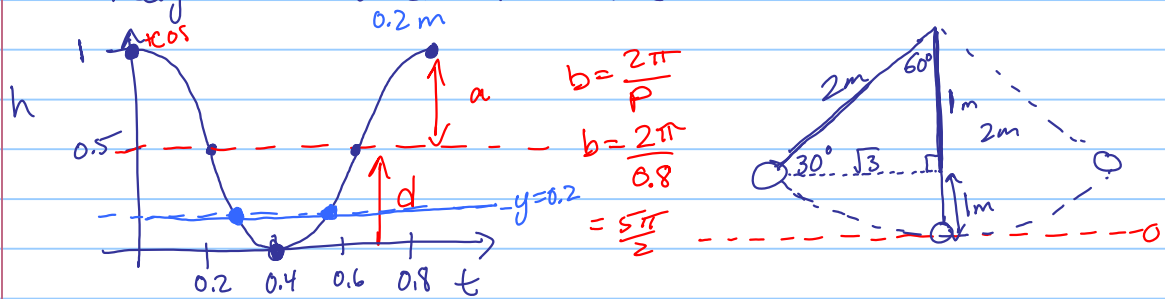 0.2 m
+cos
1
h
0.5
a
d
y=0.2
0.2 0.4 0.6 0.8 t
b = 2π/P
b = 2π/0.8
= 5π/2
60°
2m
1m
2m
30° √3
1m
0